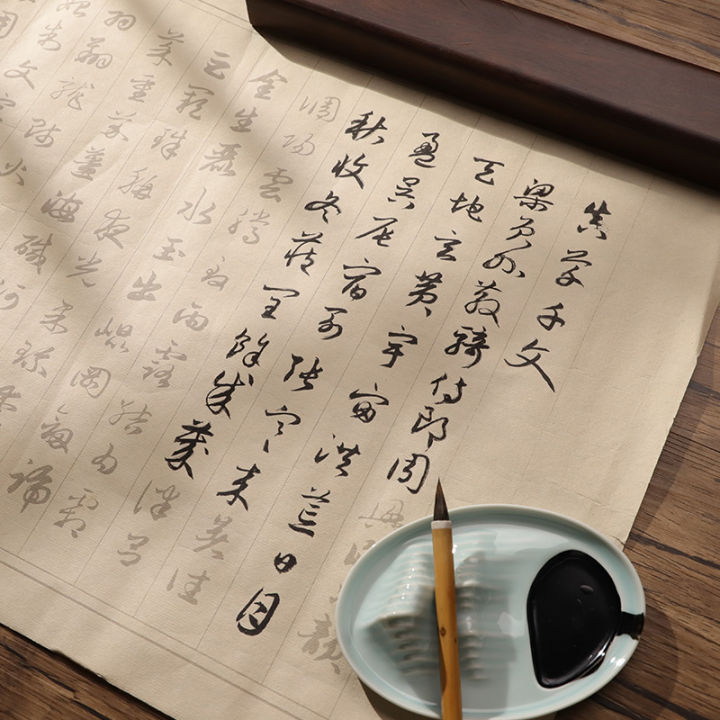 真草千文
梁員外散騎侍郎周興嗣次韻
天地玄黃宇宙洪荒日月
盈昃辰宿列張寒來暑往
秋收冬藏閏餘成歲律呂
調陽雲騰致雨露結為霜
金生麗水玉出崑岡劍號
巨闕珠稱夜光菓珍李
菜重芥薑海鹹河
羽翔龍師火
始制文字